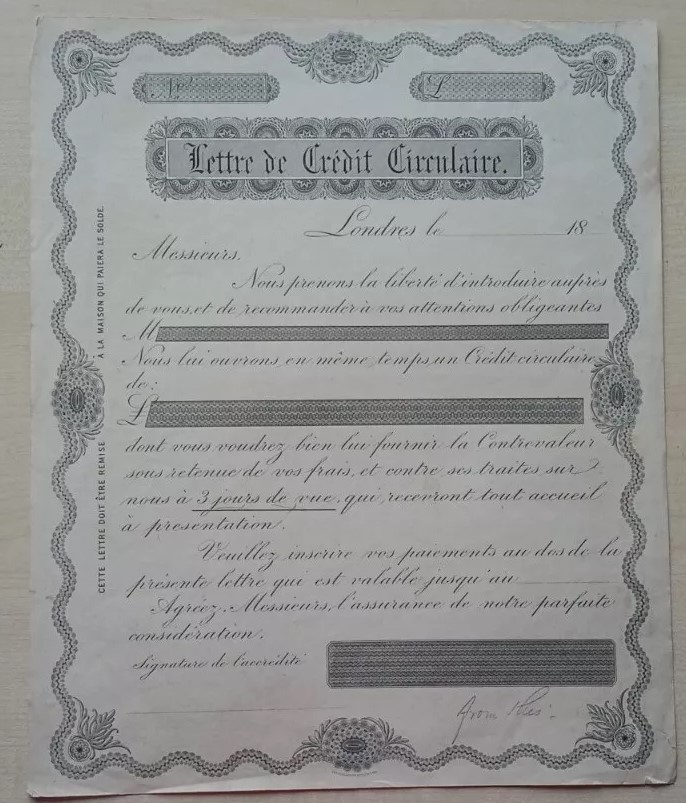 No.
£
Lettre de Crédit Circulaire.
Londres le 18
Messieurs.
Nous prenons la liberté d'introduire auprès
de vous, et de recommander à vos attentions obligeantes
M
Nous lui ouvrons, en même temps, un Crédit circulaire
de:
£
dont vous voudrez bien lui fournir la Contrevaleur
sous retenue de vos frais, et contre ses traites sur
nous à 3 jours de vue, qui, recevront tout accueil
à presentation.
Veuillez inscrire vos paiements au dos de la
présente lettre qui est valable jusqu'au
Agréez, Messieurs, l'assurance de notre parfaite
considération.
Signature de l'accrédité
from
CETTE LETTRE DOIT ÊTRE REMISE À LA MAISON QUI PAIERA LE SOLDE.